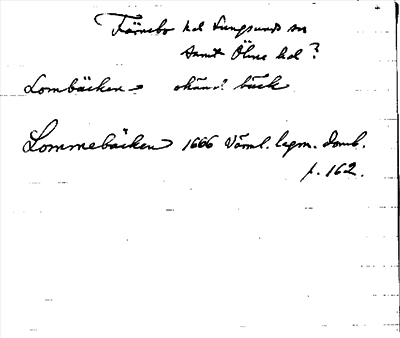 Färnebo hd Lungsunds sn
samt Ölme hd?
Lombäcken - okänd bäck
Lommebäcken 1666 Värml. lagm. domb.
p. 162.